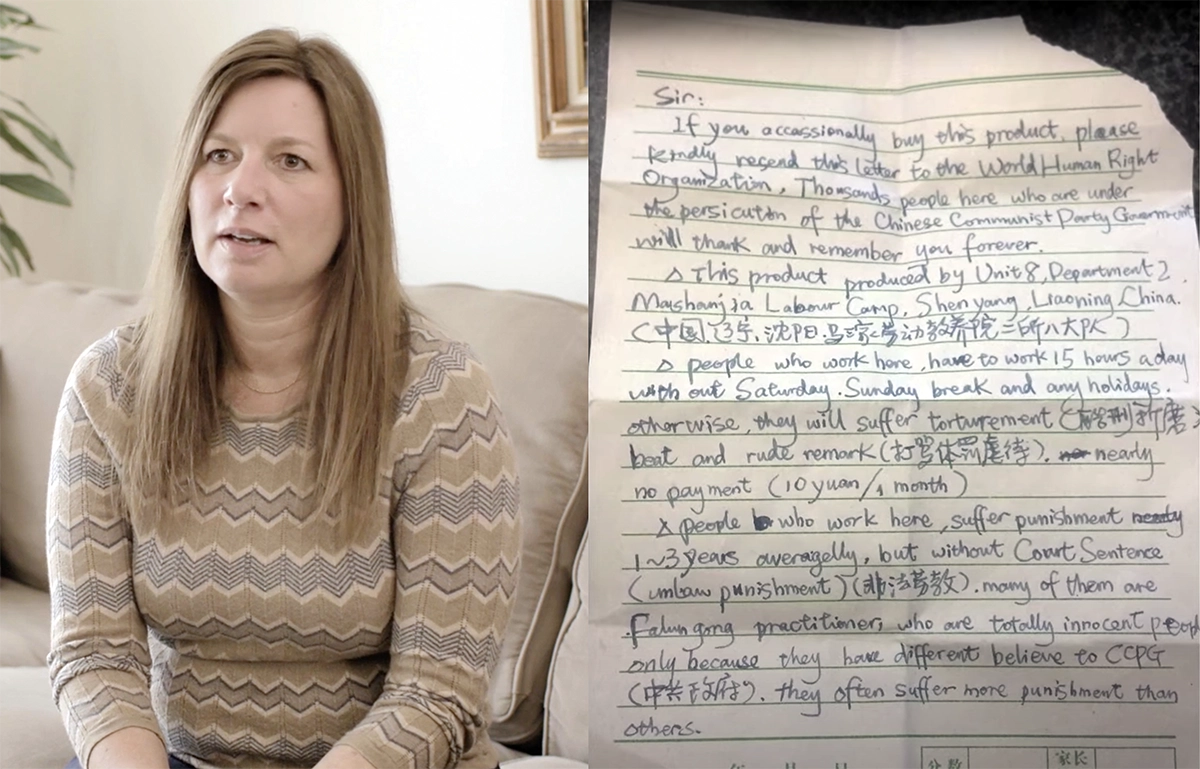 Sir:
If you accassionally buy this product, please
kindly resend this letter to the World Human Right
Organization. Thousands people here who are under
the persicution of the Chinese Communist Party Government
will thank and remember you forever.
△ This product produced by Unit 8, Department 2.
Mashanjia Labour Camp, Shenyang, Liaoning, China.
(中国,辽宁,沈阳,马三家劳动教养院二所八大队)
△ people who work here, have to work 15 hours a day
with out Saturday. Sunday break and any holidays.
otherwise, they will suffer torturement (折磨,
beat and rude remark (打骂体罚虐待). nearly
no payment (10 yuan/1 month)
△ people who work here, suffer punishment
1~3 years averagelly, but without Court Sentence
(unlaw punishment) (非法劳教). many of them are
Falun gong practitioner, who are totally innocent people
only because they have different believe to CCPG
(中共政府). they often suffer more punishment than
others.
分数 家长